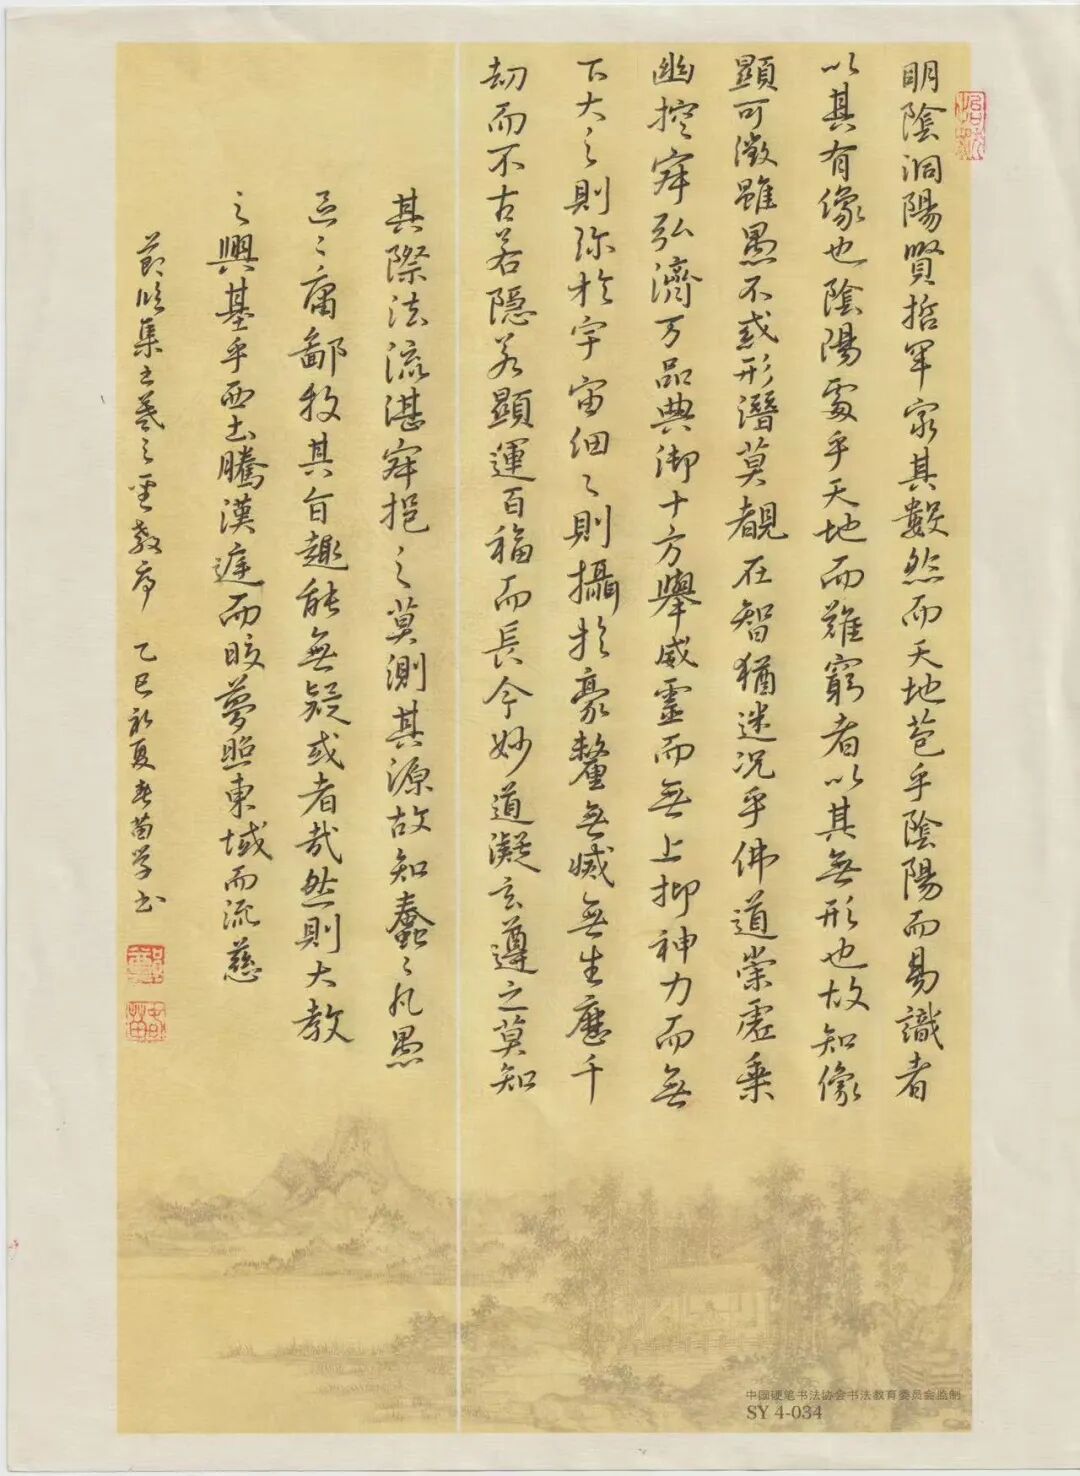 明陰洞陽賢哲罕窮其數然而天地苞乎陰陽而易識者
以其有像也陰陽處乎天地而難窮者以其無形也故知像
顯可徵雖愚不惑形潛莫覩在智猶迷況乎佛道崇虛乗
幽控寂弘濟万品典御十方舉威靈而無上抑神力而無
下大之則弥於宇宙細之則攝於豪釐無滅無生歷千
劫而不古若隱若顯運百福而長今妙道凝玄遵之莫知
其際法流湛寂挹之莫測其源故知蠢蠢凡愚
區區庸鄙投其旨趣能無疑或者哉然則大教
之興基乎西土騰漢庭而皎夢照東域而流慈
節臨集王羲之聖教序 乙巳初夏 苗学书
中国硬笔书法协会书法教育委员会监制
SY 4-034